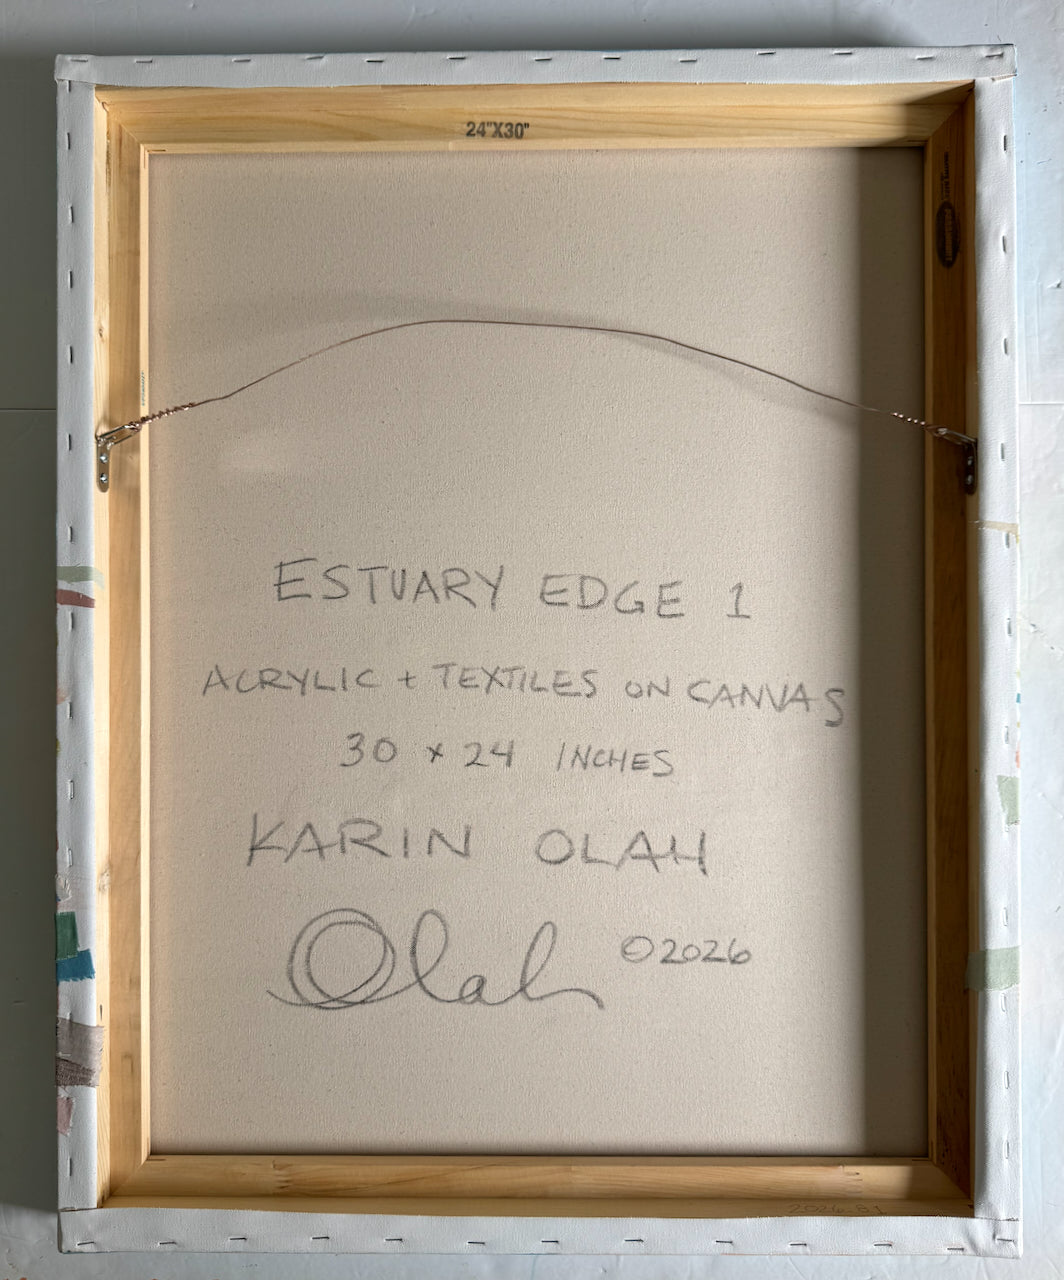 24"X30"
ESTUARY EDGE 1
ACRYLIC + TEXTILES ON CANVAS
30 x 24 INCHES
KARIN OLAH
Olah ©2026